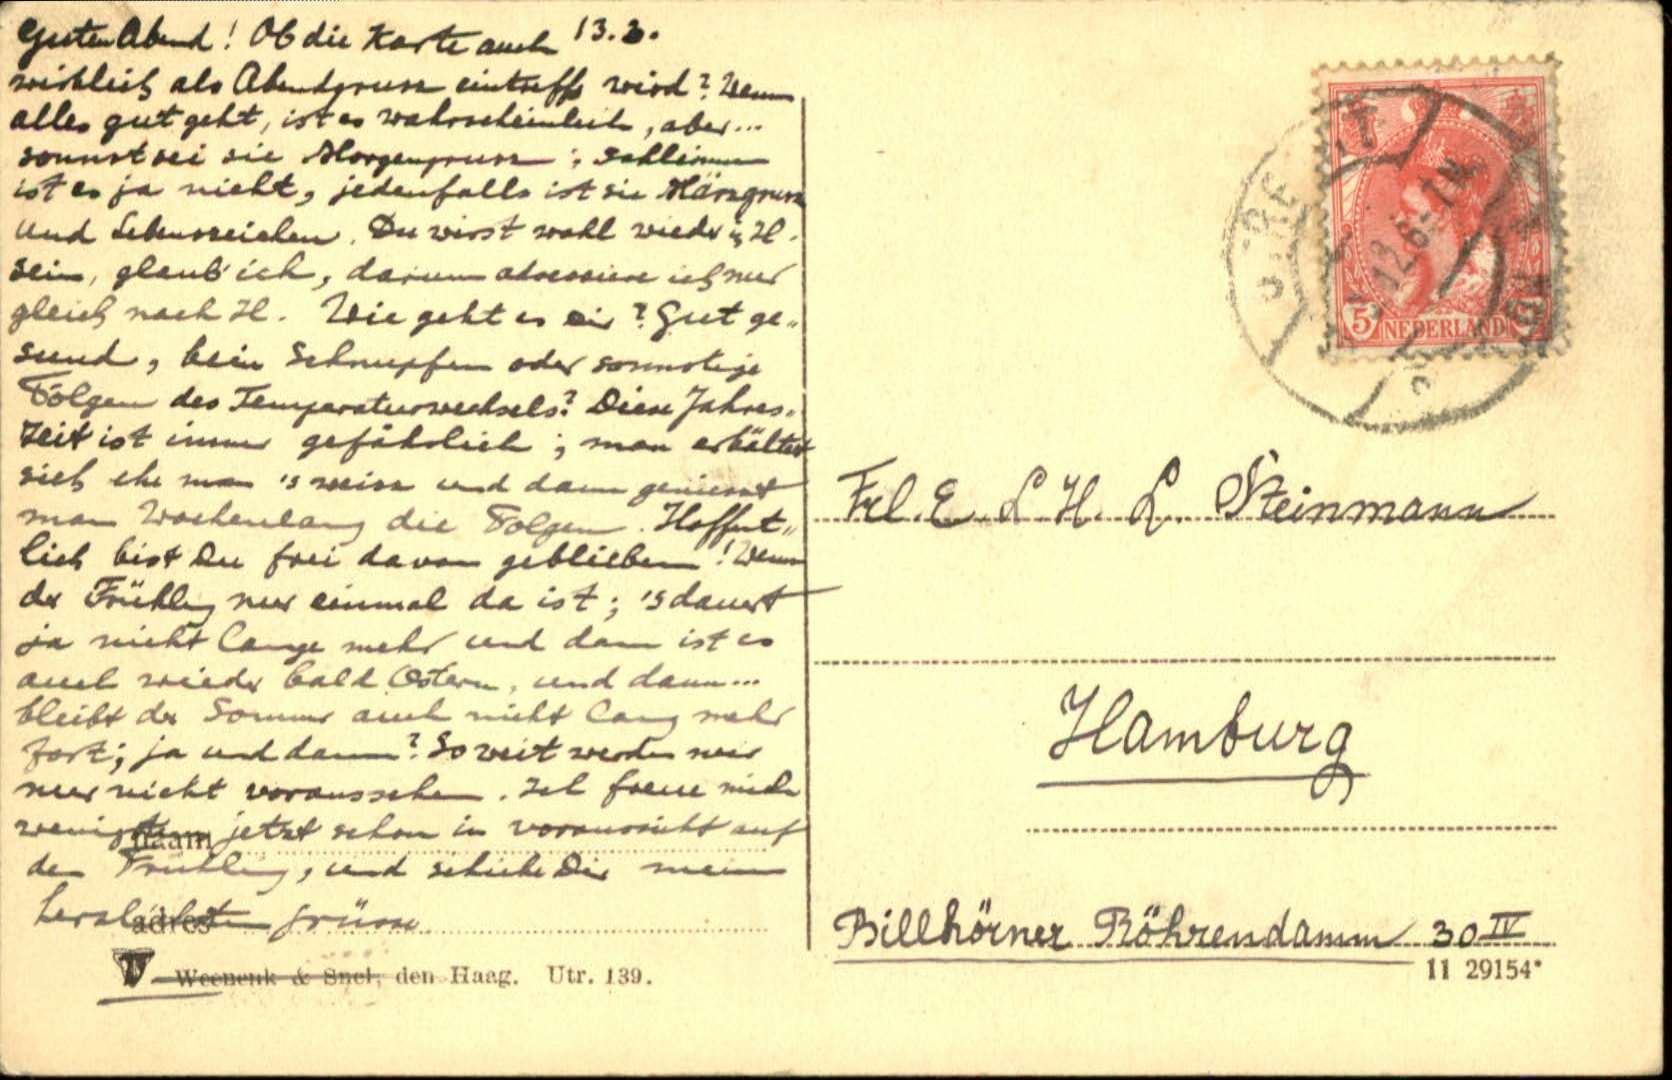 Guten Abend! Ob die Karte auch 13.3.
wirklich als Abendgruss eintreffe wird? Wenn
alles gut geht, ist es wahrscheinlich, aber...
sonnst sei sie Morgengruss; schlimm
ist es ja nicht, jedenfalls ist sie Märzgruss
und Lebenszeichen. Du wirst wohl wieder in H.
sein, glaub' ich, darum adressiere ich nur
gleich nach H. Wie geht es Dir? Gut ge„
sund, kein Schnupfen oder sonnstige
Folgen des Temperaturwechsels? Diese Jahres„
zeit ist immer gefährlich; man erkältet
sich ehe man 's weiss und dann geniesst
man Wochenlang die Folgen. Hoffent„
lich bist Du frei davon geblieben! Wenn
der Frühling nur einmal da ist; 's dauert
ja nicht lange mehr und dann ist es
auch wieder bald Ostern, und dann...
bleibt der Sommer auch nicht lang mehr
fort; ja und dann? So weit werden wir
nur nicht voraussehen. Ich freue mich
wenigsten jetzt schon in voraussicht auf
den Frühling, und schicke Dir meine
herzlichsten Grüsse
naam
adres
W
Weenenk & Snel, den Haag. Utr. 139.
5 NEDERLAND
UTRECHT
12.6-7N
Frl. E L H. L. Steinmann
Hamburg
Billhörner Röhrendamm 30 IV
11 29154*